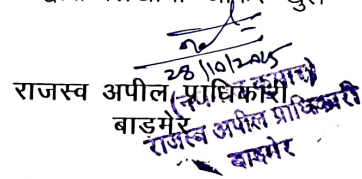 28/10/2025
राजस्व अपील प्राधिकारी
बाड़मेर
राजस्व अपील प्राधिकारी
बाड़मेर